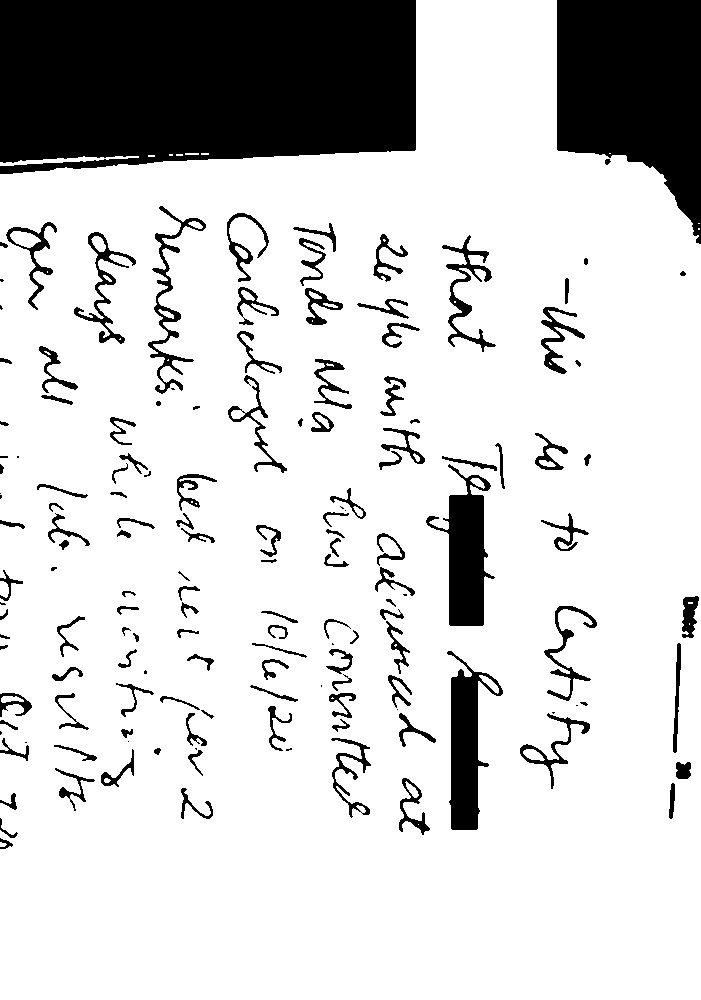 Date: ____ 20 __
This is to Certify
that
26 y/o with address at
Tondo Mla has consulted
Cardiologist on 10/6/20
Remarks: bed rest for 2
days while waiting
for all lab. results